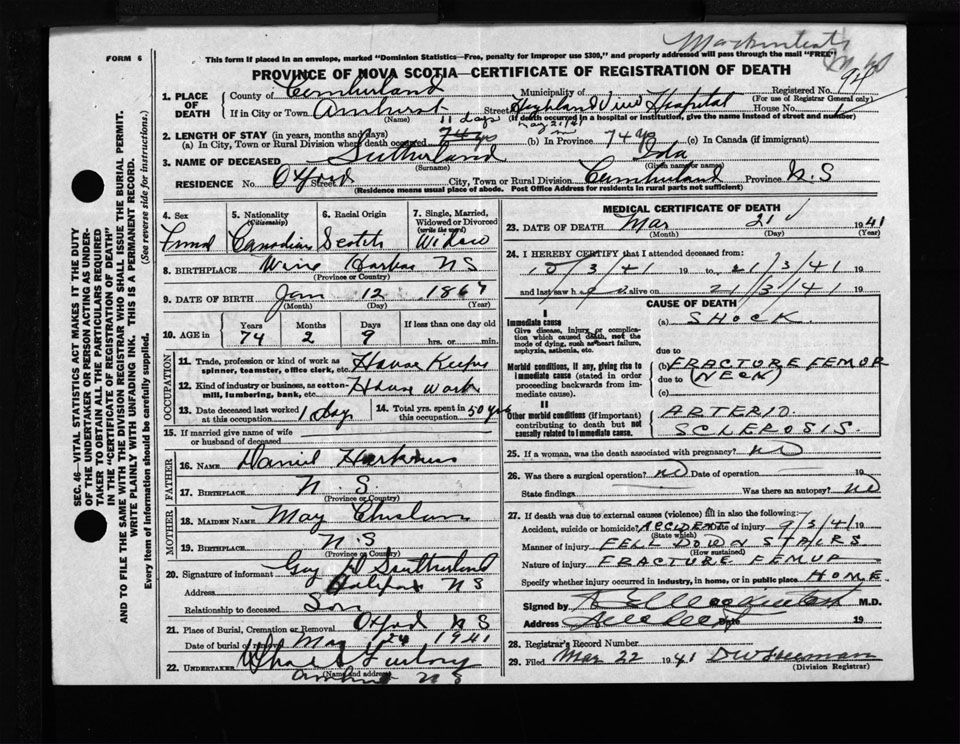 FORM 6
This form if placed in an envelope, marked "Dominion Statistics—Free, penalty for improper use $300," and properly addressed will pass through the mail "FREE"
PROVINCE OF NOVA SCOTIA—CERTIFICATE OF REGISTRATION OF DEATH
1. PLACE OF DEATH
County of Cumberland Municipality of Registered No.
(For use of Registrar General only)
If in City or Town Amherst Street Highland View Hospital House No.
(Name) (If death occurred in a hospital or institution, give the name instead of street and number)
11 days
2. LENGTH OF STAY (in years, months and days)
(a) In City, Town or Rural Division where death occurred (b) In Province 74 (c) In Canada (if immigrant)
3. NAME OF DECEASED Sutherland Ida
(Surname) (Given name or names)
RESIDENCE No. Oxford Street City, Town or Rural Division Cumberland Province N.S
(Residence means usual place of abode. Post Office Address for residents in rural parts not sufficient)
4. Sex
5. Nationality (Citizenship) Canadian
6. Racial Origin Scotch
7. Single, Married, Widowed or Divorced (write the word) Widow
8. BIRTHPLACE Wine Harbor NS
(Province or Country)
9. DATE OF BIRTH Jan 12 1867
(Month) (Day) (Year)
10. AGE in Years Months Days If less than one day
74 2 9 hrs. or min.
OCCUPATION
11. Trade, profession or kind of work as spinner, teamster, office clerk, etc. House Keeper
12. Kind of industry or business, as cotton-mill, lumbering, bank, etc. House Work
13. Date deceased last worked at this occupation
14. Total yrs. spent in this occupation 50 yrs
15. If married give name of wife or husband of deceased
FATHER
16. NAME Daniel
17. BIRTHPLACE N.S.
(Province or Country)
MOTHER
18. MAIDEN NAME May
19. BIRTHPLACE N.S
(Province or Country)
20. Signature of informant Guy Sutherland
Address Halifax NS
Relationship to deceased Son
21. Place of Burial, Cremation or Removal Oxford NS
Date of burial or removal 24 1941
22. UNDERTAKER
(Name and address)
Amherst N S
MEDICAL CERTIFICATE OF DEATH
23. DATE OF DEATH Mar 21 1941
(Month) (Day) (Year)
24. I HEREBY CERTIFY that I attended deceased from:
10/3/41 19 to 21/3/41 19
and last saw her alive on 21/3/41 19
CAUSE OF DEATH
I
Immediate cause
Give disease, injury or complication which caused death, not the mode of dying, such as heart failure, asphyxia, asthenia, etc.
(a) SHOCK
due to
Morbid conditions, if any, giving rise to immediate cause (stated in order proceeding backwards from immediate cause).
(b) FRACTURE FEMUR
due to (NECK)
(c)
II
Other morbid conditions (if important) contributing to death but not causally related to immediate cause.
ARTERIO
SCLEROSIS.
25. If a woman, was the death associated with pregnancy? NO
26. Was there a surgical operation? NO Date of operation 19
State findings Was there an autopsy? NO
27. If death was due to external causes (violence) fill in also the following:
Accident, suicide or homicide? ACCIDENT Date of injury 9/3/41 19
(State which)
Manner of injury FELL DOWN STAIRS
(How sustained)
Nature of injury FRACTURE FEMUR
Specify whether injury occurred in industry, in home, or in public place HOME
Signed by M.D.
Address Date 19
28. Registrar's Record Number
29. Filed Mar 22 1941
(Division Registrar)
SEC. 46—VITAL STATISTICS ACT MAKES IT THE DUTY
OF THE UNDERTAKER OR PERSON ACTING AS UNDER-
TAKER TO OBTAIN ALL THE PARTICULARS REQUIRED
IN THE "CERTIFICATE OF REGISTRATION OF DEATH"
AND TO FILE THE SAME WITH THE DIVISION REGISTRAR WHO SHALL ISSUE THE BURIAL PERMIT.
WRITE PLAINLY WITH UNFADING INK. THIS IS A PERMANENT RECORD.
Every item of information should be carefully supplied. (See reverse side for instructions.)